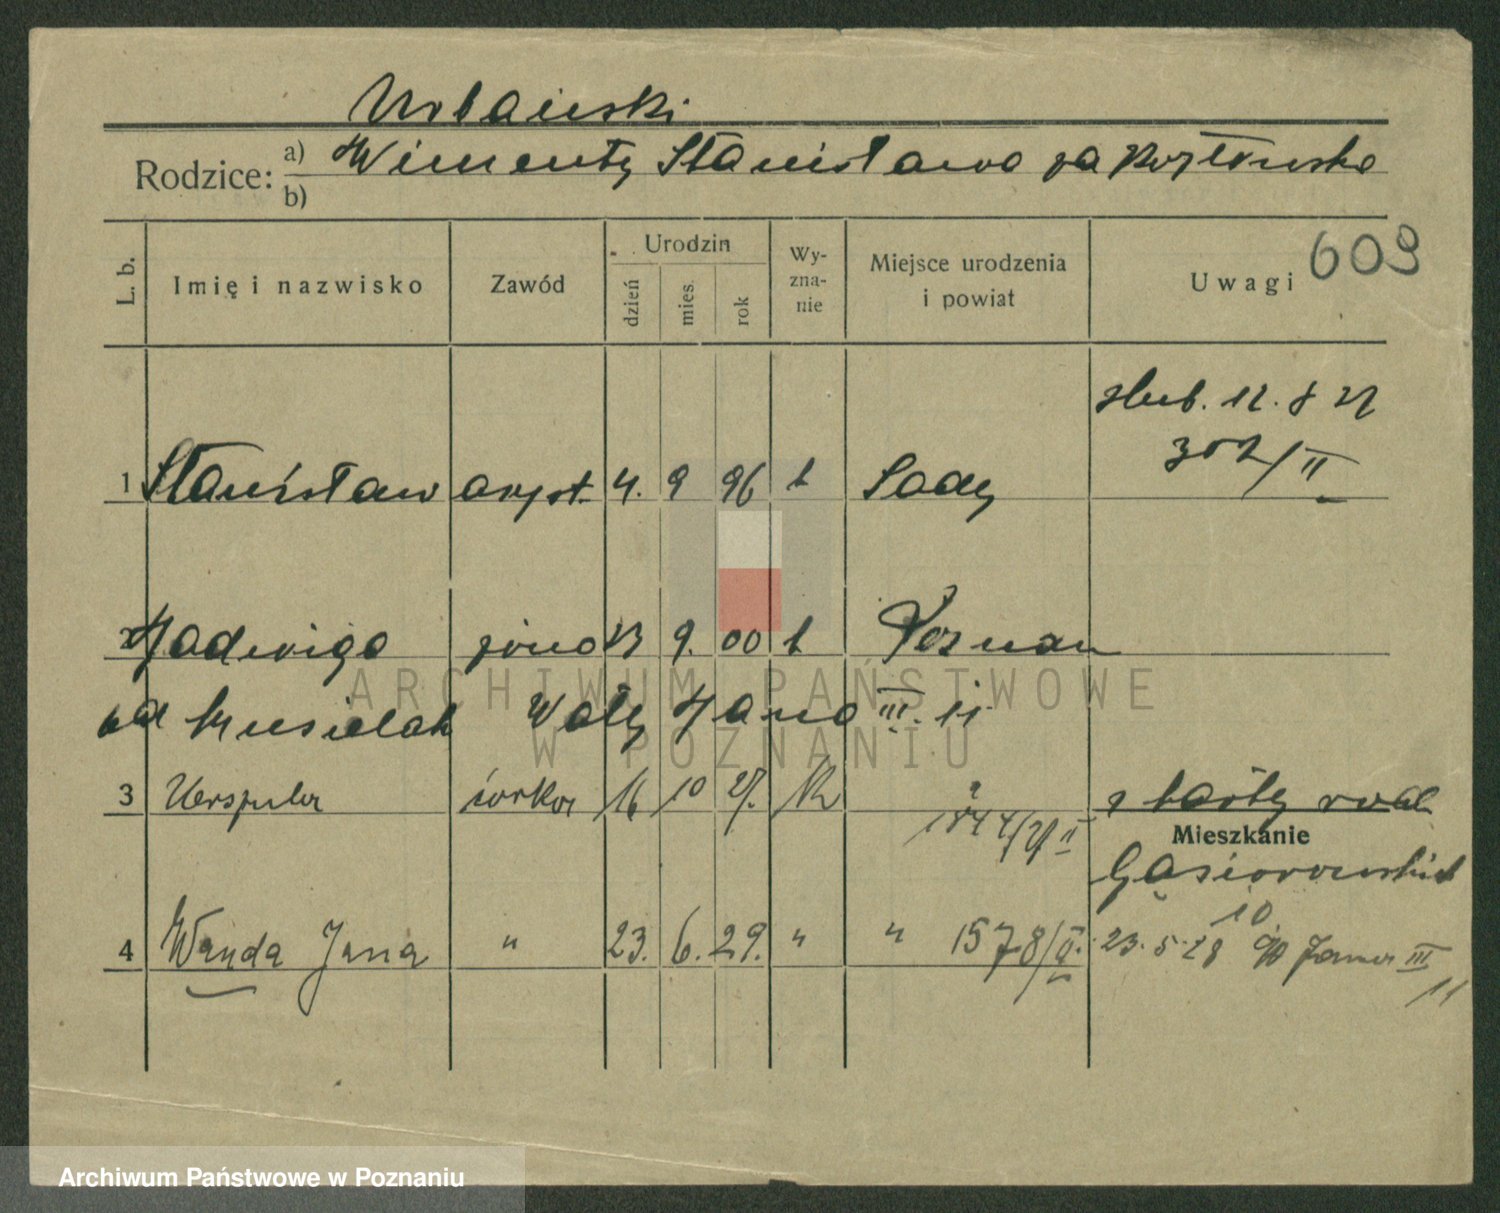 Urbański
Rodzice: a) Wincenty Stanisława
b)
L. b. Imię i nazwisko Zawód Urodzin dzień mies. rok Wy-zna-nie Miejsce urodzenia i powiat Uwagi 609
ślub. 12. 8 27
302/II
1 Stanisław 4. 9 96 k Sady
Jadwiga żona 13 9. 00 k Poznań
od Musielak Wały Jana III. 11
3 Urszula córka 16 10 27. K ?
1844/27 II
Mieszkanie
Gąsiorowskich
10
4 Wanda Jana " 23. 6. 29. " " 1578/II. 23.5.28 Jana III
11
ARCHIWUM PAŃSTWOWE
W POZNANIU
Archiwum Państwowe w Poznaniu